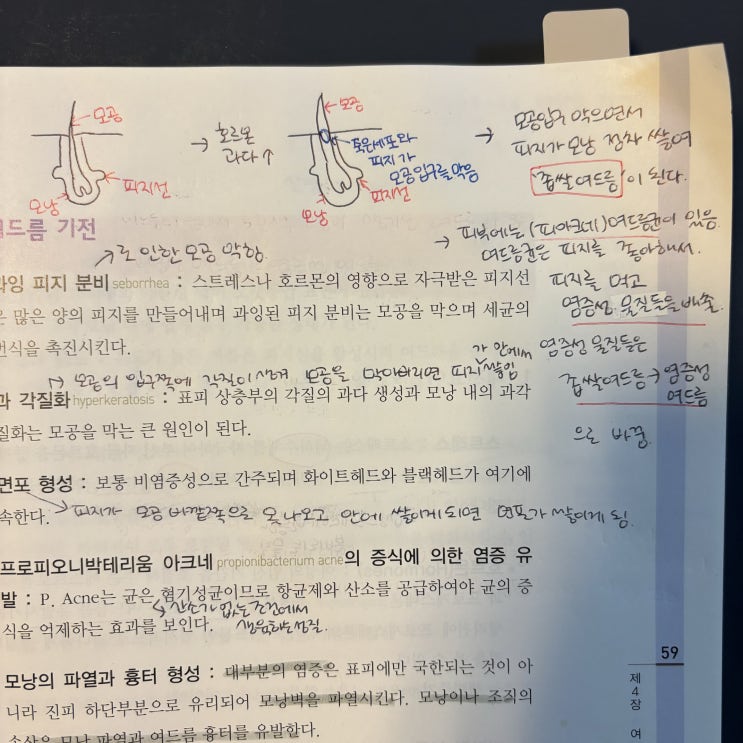 모공
→ 호르몬
과다↑
모낭
피지선
모공
죽은세포와
피지가
모공입구를 막음
피지선
모낭
→ 모공입구 막으면서
피지가 모낭 점차 쌓여
'좁쌀여드름'이 된다.
드름 기전
→ 피부에는 (피아크네) 여드름균이 있음.
여드름균은 피지를 좋아해서.
피지를 먹고
염증성 물질들을 배출.
염증성 물질들은
좁쌀여드름 → 염증성
여드름
으로 바꿈.
↗로 인한 모공 막힘
잉 피지 분비 seborrhea : 스트레스나 호르몬의 영향으로 자극받은 피지선
은 많은 양의 피지를 만들어내며 과잉된 피지 분비는 모공을 막으며 세균의
번식을 촉진시킨다.
↳ 모공의 입구쪽에 각질이 생겨 모공을 막아버리면 피지가 안에서 쌓임
과 각질화 hyperkeratosis : 표피 상층부의 각질의 과다 생성과 모낭 내의 과각
질화는 모공을 막는 큰 원인이 된다.
면포 형성 : 보통 비염증성으로 간주되며 화이트헤드와 블랙헤드가 여기에
속한다.
피지가 모공 바깥쪽으로 못 나오고 안에 쌓이게 되면 면포가 쌓이게 됨.
프로피오니박테리움 아크네 propionibacterium acne의 증식에 의한 염증 유
발 : P. Acne는 균은 혐기성균이므로 항균제와 산소를 공급하여야 균의 증
식을 억제하는 효과를 보인다.
↳ 산소가 없는 조건에서
생육하는 성질.
모낭의 파열과 흉터 형성 : 대부분의 염증은 표피에만 국한되는 것이 아
니라 진피 하단부분으로 유리되어 모낭벽을 파열시킨다. 모낭이나 조직의
손상은 모낭 파열과 여드름 흉터를 유발한다.
59
제4장 여